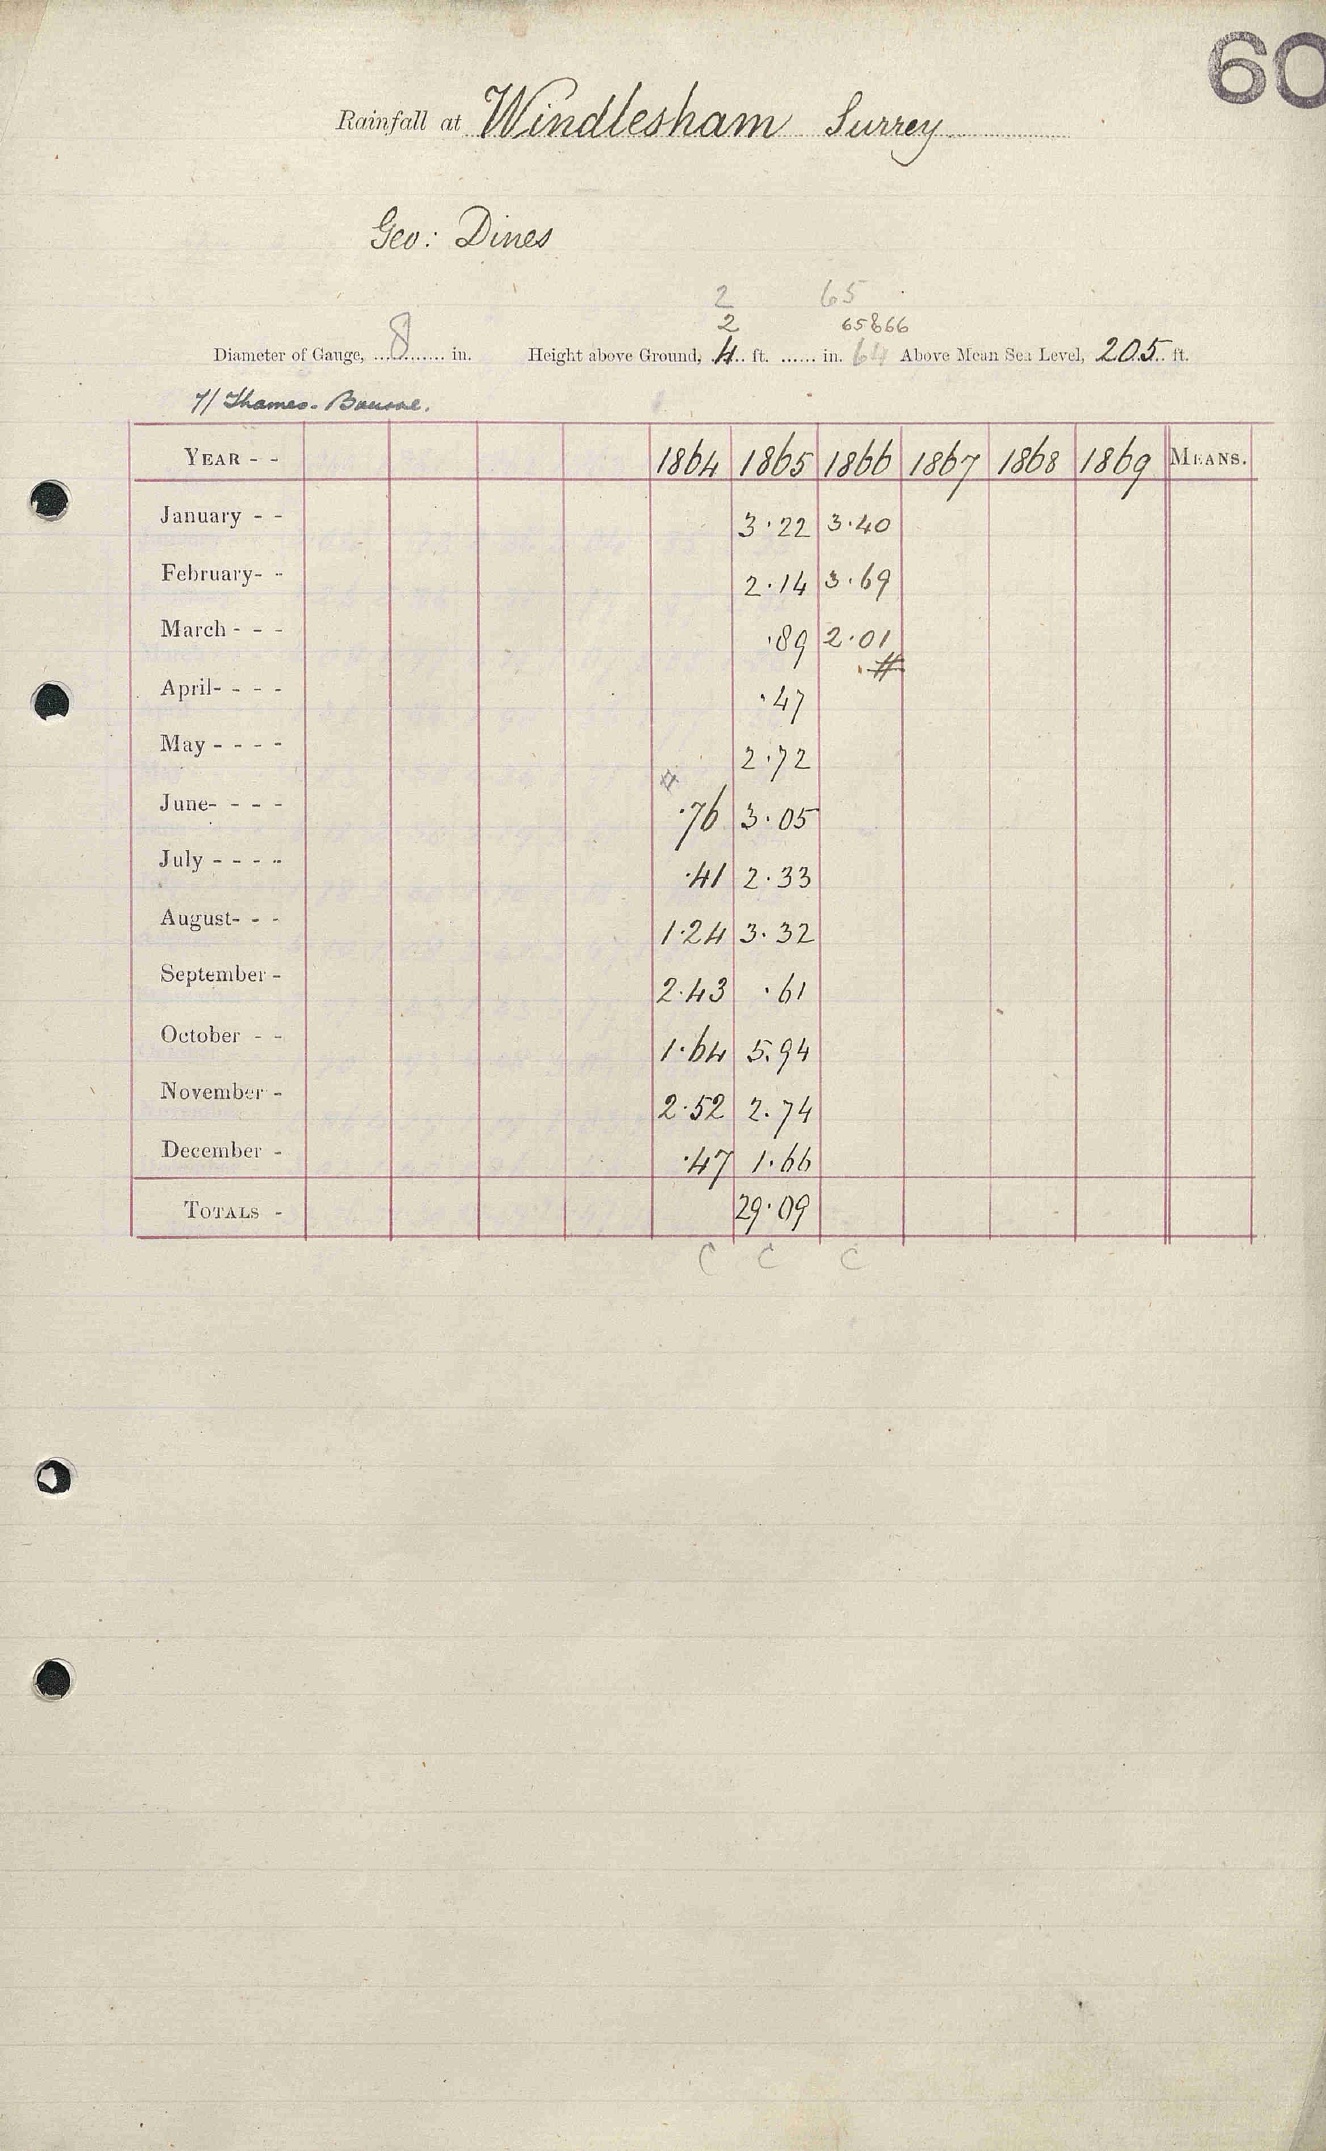 60
Rainfall at Windlesham Surrey
Geo: Dines
2 65
2 65&66
Diameter of Gauge, 8 in. Height above Ground, 4 ft. in. 64 Above Mean Sea Level, 205 ft.
7/ Thames - Bourne.
YEAR - - 1864 1865 1866 1867 1868 1869 MEANS.
January - - 3.22 3.40
February- - 2.14 3.69
March - - - .89 2.01
April- - - - .47
May - - - - 2.72
June- - - - .76 3.05
July - - - - .41 2.33
August- - - 1.24 3.32
September - 2.43 .61
October - - 1.64 5.94
November - 2.52 2.74
December - .47 1.66
TOTALS - 29.09
C C C